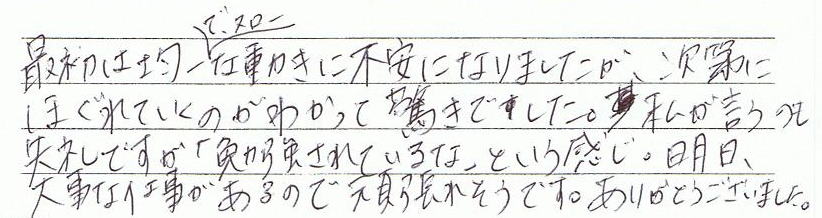 最初は均一でスローな動きに不安になりましたが、次第に
ほぐれていくのがわかって驚きでした。私が言うのも
失礼ですが「勉強されているな」という感じ。明日、
大事な仕事があるので頑張れそうです。ありがとうございました。